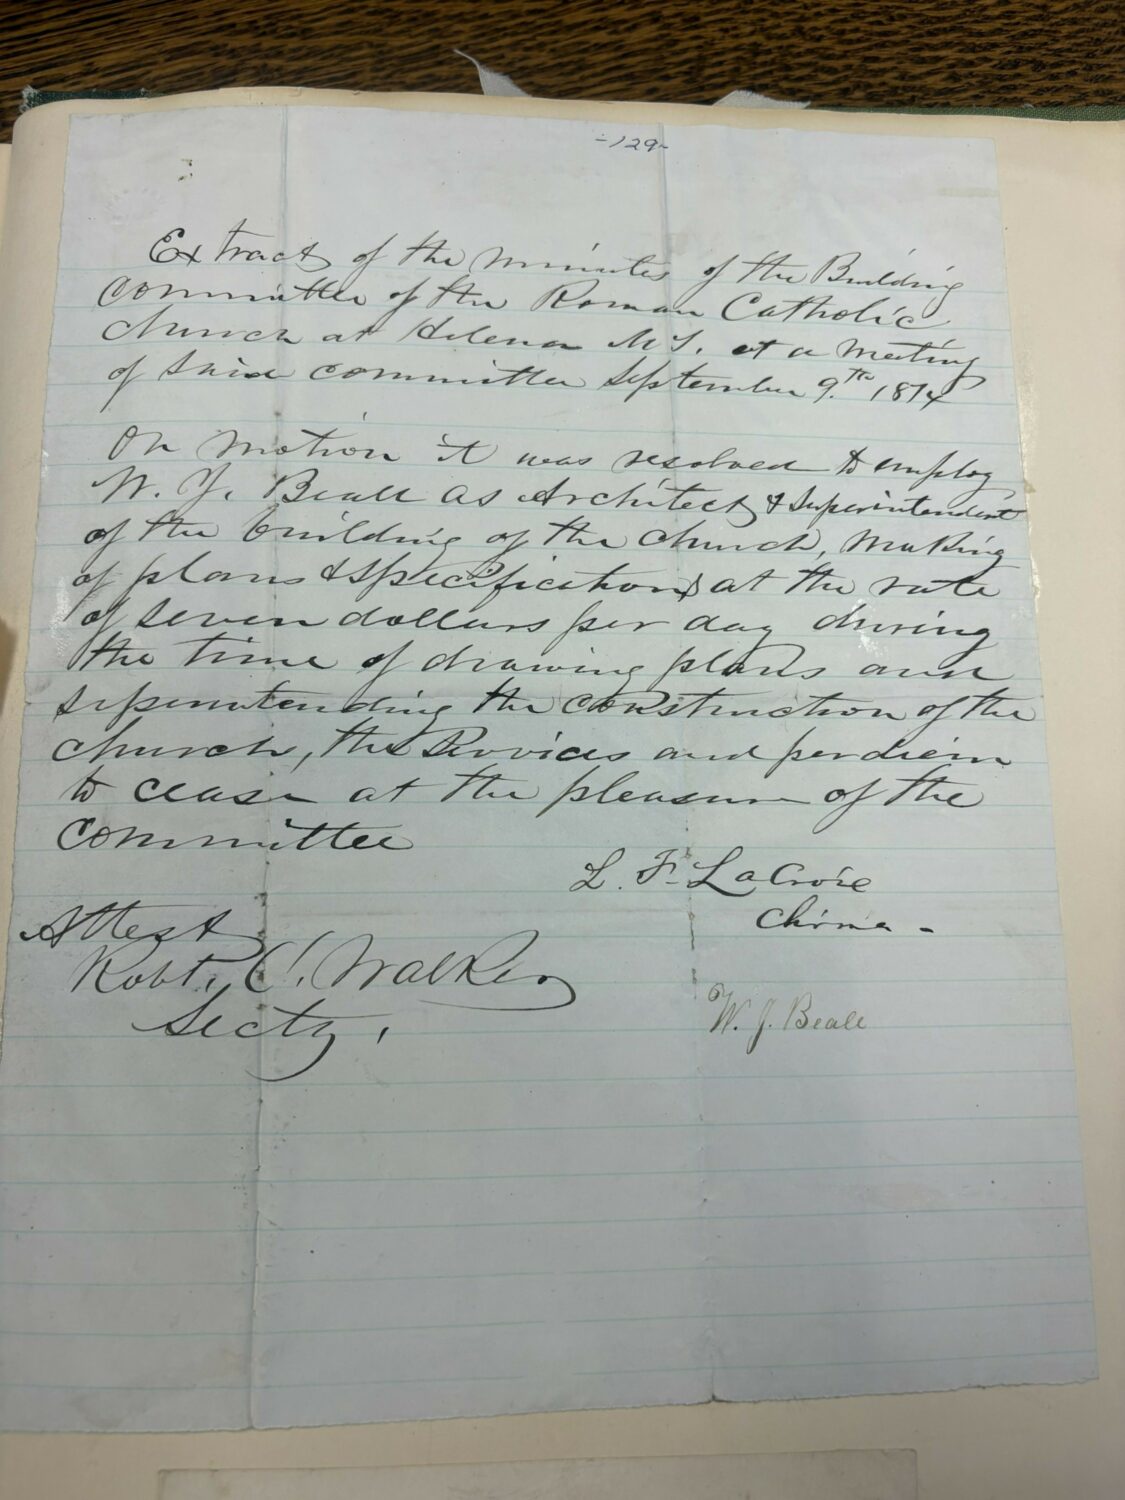 -129-
Extracts of the minutes of the Building
Committee of the Roman Catholic
Church at Helena M.T. at a meeting
of said committee September 9.th 1874
On motion it was resolved to employ
W. J. Beall as Architect & Superintendent
of the building of the church, making
of plans & specifications at the rate
of seven dollars per day during
the time of drawing plans and
superintending the construction of the
church, the Services and per diem
to cease at the pleasure of the
Committee
L. F. LaCroix
Chrmn.
Attest
Robt. C. Walker
Secty.
W. J. Beall